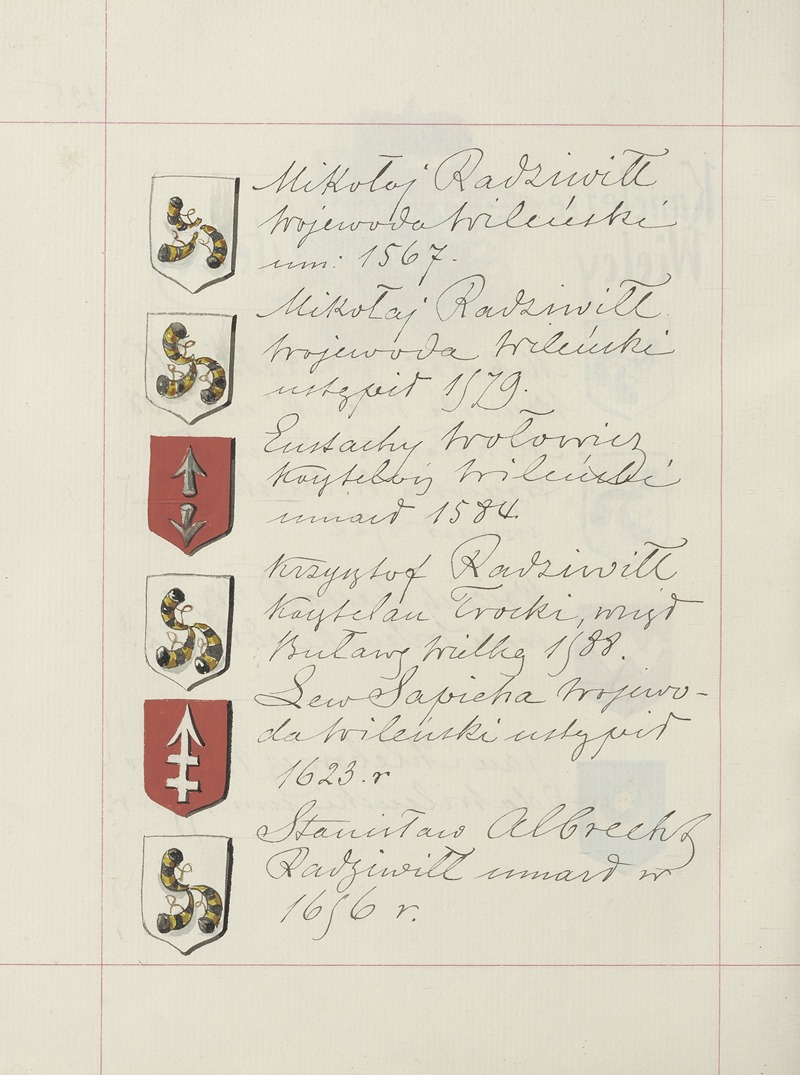 Mikołaj Radziwiłł
wojewoda wileński
um: 1567.
Mikołaj Radziwiłł
wojewoda wileński
ustąpił 1579.
Eustachy Wołowicz
Kasztelan wileński
umarł 1584.
Krzysztof Radziwiłł
Kasztelan Trocki, wziął
Buławę Wielką 1588.
Lew Sapieha wojewo-
da wileński ustąpił
1623. r
Stanisław Albrecht
Radziwiłł umarł w
1656 r.